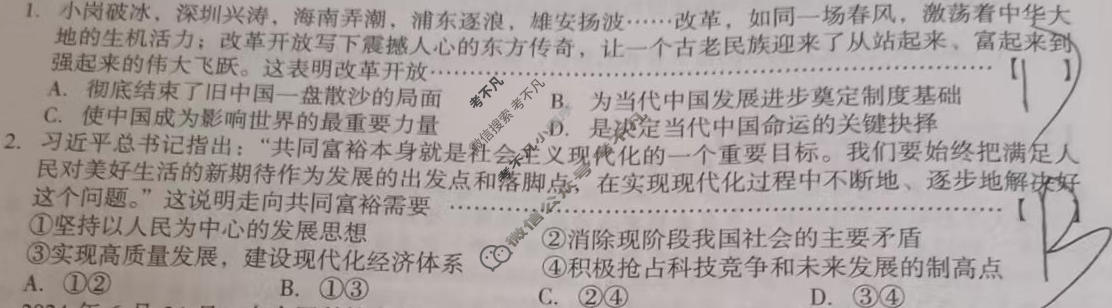 1. 小岗破冰，深圳兴涛，海南弄潮，浦东逐浪，雄安扬波……改革，如同一场春风，激荡着中华大
地的生机活力；改革开放写下震撼人心的东方传奇，让一个古老民族迎来了从站起来、富起来到
强起来的伟大飞跃。这表明改革开放………………………………………………【 】
A. 彻底结束了旧中国一盘散沙的局面 B. 为当代中国发展进步奠定制度基础
C. 使中国成为影响世界的最重要力量 D. 是决定当代中国命运的关键抉择
2. 习近平总书记指出：“共同富裕本身就是社会主义现代化的一个重要目标。我们要始终把满足人
民对美好生活的新期待作为发展的出发点和落脚点，在实现现代化过程中不断地、逐步地解决好
这个问题。”这说明走向共同富裕需要 ………………………………………………【B】
①坚持以人民为中心的发展思想 ②消除现阶段我国社会的主要矛盾
③实现高质量发展，建设现代化经济体系 ④积极抢占科技竞争和未来发展的制高点
A. ①② B. ①③ C. ②④ D. ③④
考不凡
微信搜索 考不凡
考不凡小
微信公众号